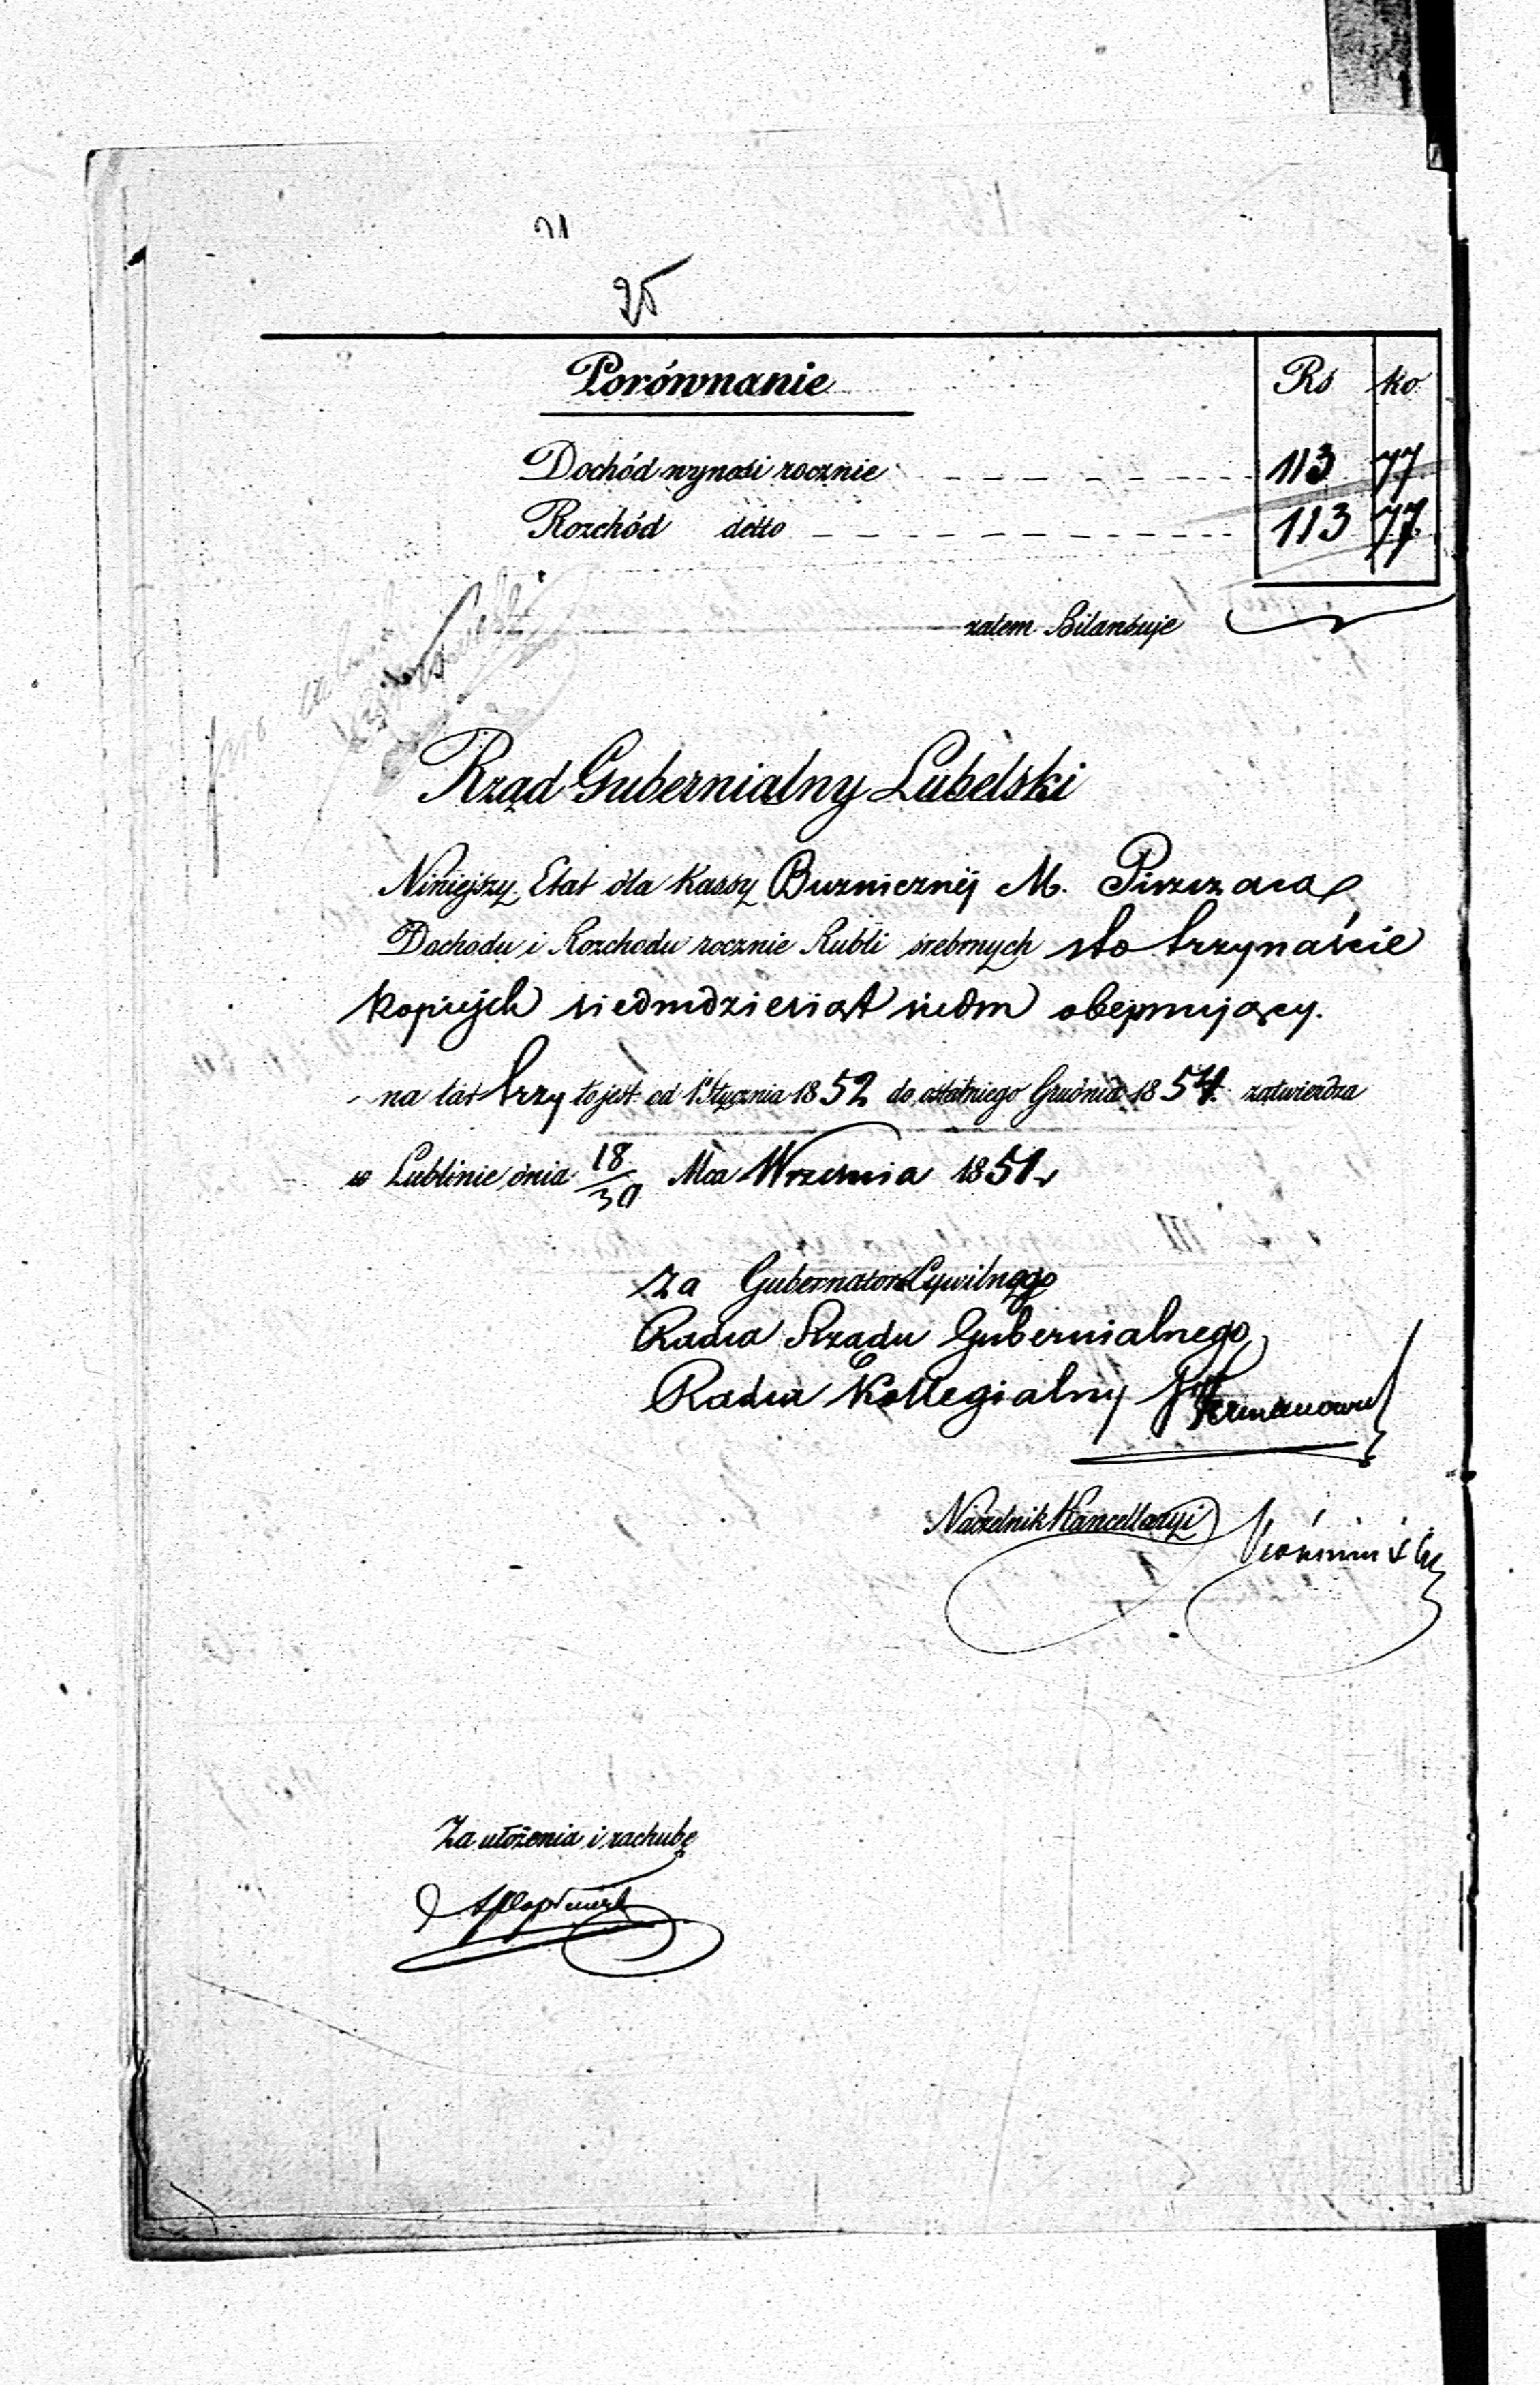 Porównanie
Rs ko
Dochód wynosi rocznie 113 77
Rozchód detto 113 77
zatem Bilansuje
Rząd Gubernialny Lubelski
Niniejszy Etat dla Kassy Buznicznéj M. Piszczaca
Dochodu i Rozchodu rocznie Rubli srebrnych sto trzynaście
kopiejek siedmdziesiąt siedm obejmujący.
na lat trzy to jest od 1 Stycznia 1852 do ostatniego Grudnia 1854 zatwierdza
w Lublinie dnia 18/30 Mca Września 1851 r
Za Gubernatora Cywilnego
Radca Rządu Gubernialnego
Radca Kollegialny
Naczelnik Kancellaryi
Za ułożenia i rachubę